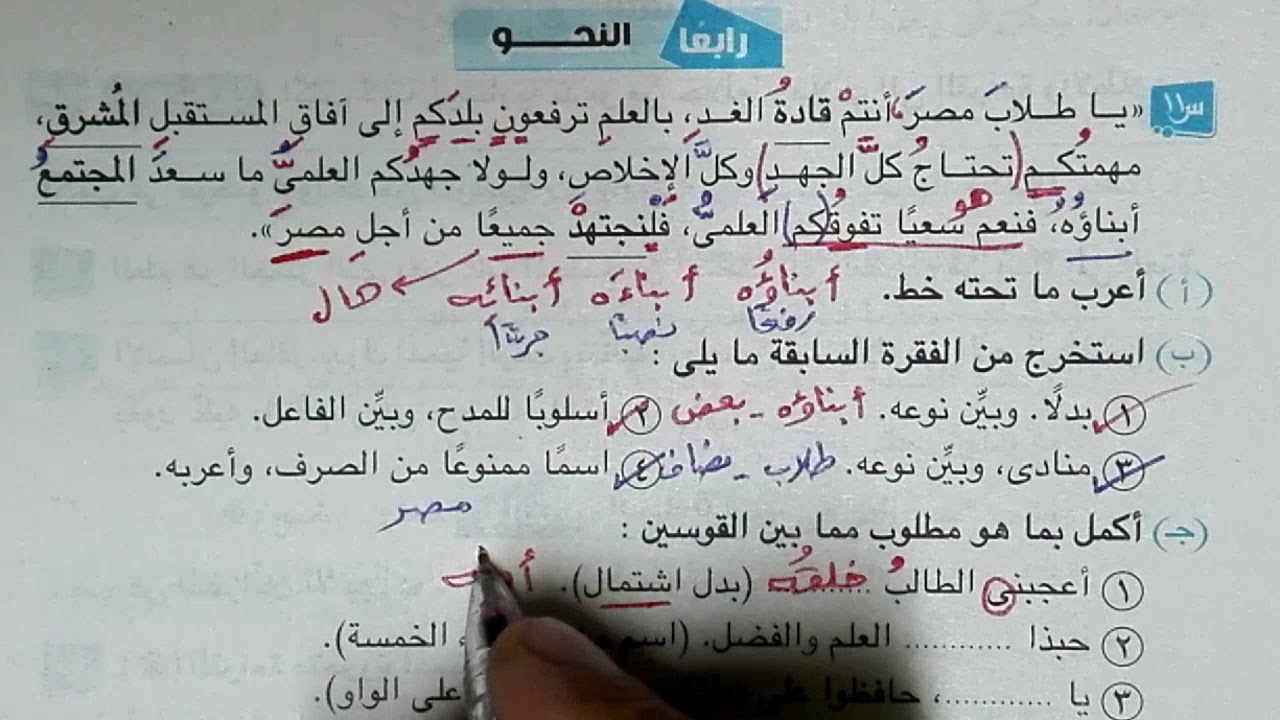 رابعًا النحــــو
س١١ «يـا طـلابَ مصرَ، أنتمْ قادةُ الغـد، بالعلمِ ترفعون بلدَكم إلى آفاقِ المسـتقبلِ المُشرقِ،
مهمتُكـم (تحتـاجُ كلَّ الجهـدِ) وكلَّ الإخلاصِ، ولـولا جهدُكم العلميُّ ما سـعدَ المجتمعُ
هو
أبناؤُهُ، فنعم سعيًا تفوقُكم العلميُّ، فَلْنجتهدْ جميعًا من أجلِ مصرَ».
(أ) أعرب ما تحته خط. أبناؤُه أبناءَه أبنائِه ← حال
رفعًا نصبًا جرًّا
(ب) استخرج من الفقرة السابقة ما يلى :
١ بدلًا. وبيِّن نوعه. أبناؤه - بعض ٢ أسلوبًا للمدح، وبيِّن الفاعل.
٣ منادى، وبيِّن نوعه. طلاب - مضاف ٤ اسمًا ممنوعًا من الصرف، وأعربه.
مصر
(جـ) أكمل بما هو مطلوب مما بين القوسين :
١ أعجبنى الطالبُ خلقُه (بدل اشتمال).
٢ حبذا ............ العلم والفضل. (اسم الخمسة).
٣ يا ............، حافظوا على على الواو).